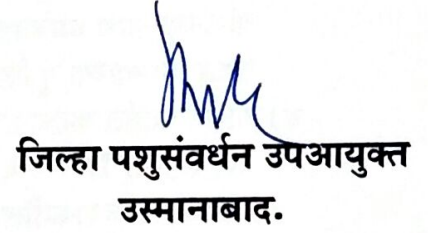 जिल्हा पशुसंवर्धन उपआयुक्त
उस्मानाबाद.